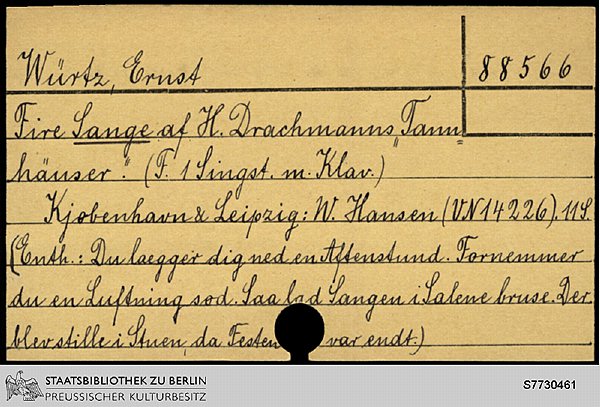 Würtz, Ernst
88566
Fire Sange af H. Drachmanns „Tann=
häuser“. (F. 1 Singst. m. Klav.)
Kjøbenhavn & Leipzig: W. Hansen (VN 14226). 11 S.
(Enth.: Du laegger dig ned en Aftenstund. Fornemmer
du en Luftning sød. Saa lad Sangen i Salene bruse. Der
blev stille i Stuen, da Festen var endt.)
STAATSBIBLIOTHEK ZU BERLIN
PREUSSISCHER KULTURBESITZ
S7730461